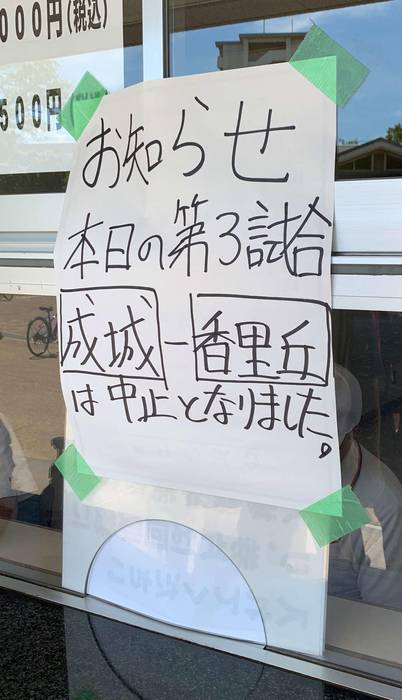 000円(税込)
500円
お知らせ
本日の第3試合
成城-香里丘
は中止となりました。